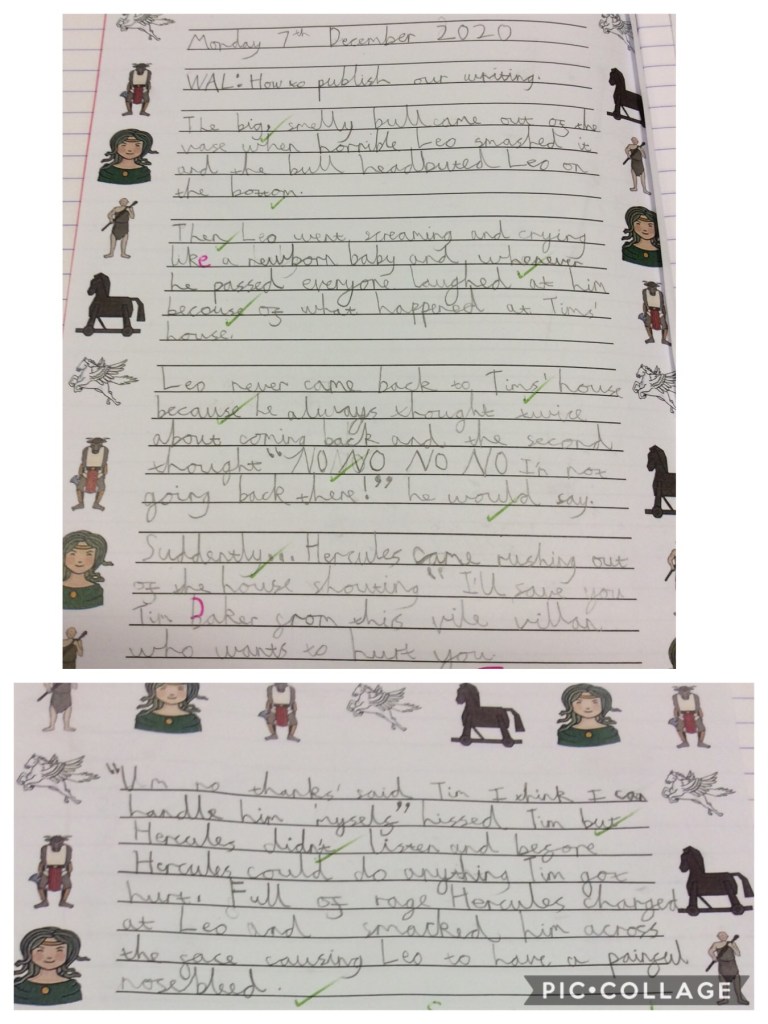 Monday 7th December 2020
WAL: How to publish our writing.
The big, smelly bull came out of the
vase when horrible Leo smashed it
and the bull headbuted Leo on
the bottom.
Then Leo went screaming and crying
like a newborn baby and, whenever
he passed everyone laughed at him
becouse of what happened at Tims'
house.
Leo never came back to Tims' house
because he always thought twice
about coming back and the second
thought "NO NO NO NO I'm not
going back there!" he would say.
Suddenly... Hercules came rushing out
of the house shouting "I'll save you
Tim Baker from this vile villan
who wants to hurt you
"Um no thanks' said Tim I think I can
handle him 'myself" hissed Tim but
Hercules didn't listen and before
Hercules could do anything Tim got
hurt. Full of rage Hercules charged
at Leo and smacked him across
the face causing Leo to have a painful
nosebleed.
PIC•COLLAGE